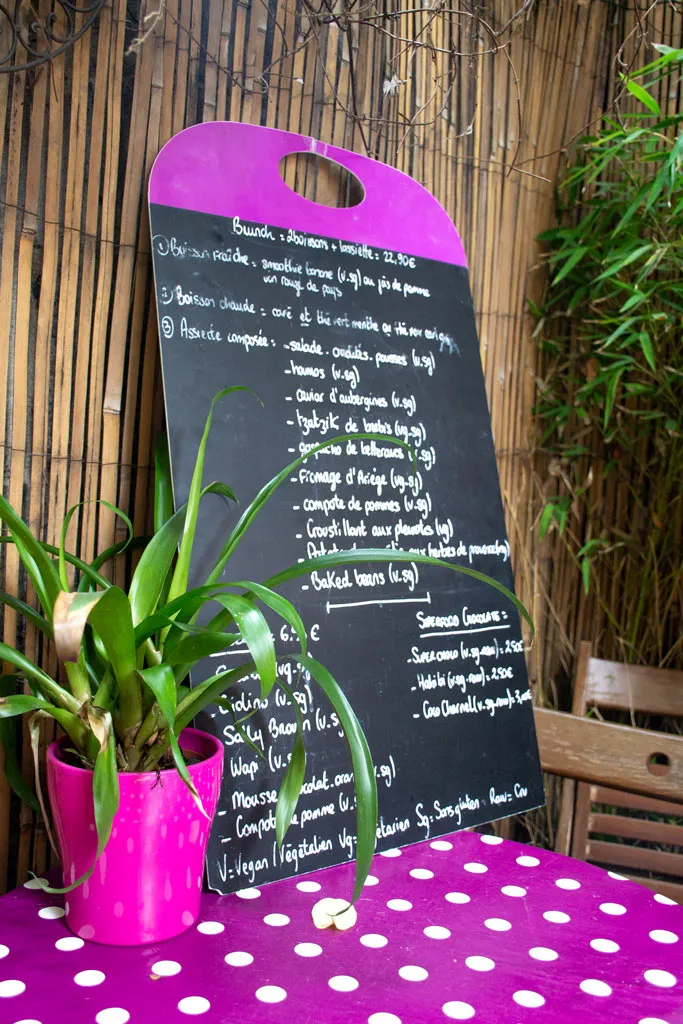 Brunch = 2boissons + lassiette = 22,90€
① Boisson Fraîche = smoothie banane (v.sg) ou jus de pomme
vin rouge de pays
② Boisson chaude = café et thé vert menthe ou thé noir
③ Assiette composée = -salade. crudités. pousses (v.sg)
-houmos (v.sg)
- caviar d'aubergines (v.sg)
- tzatzik de brebis (vg.sg)
- gaspacho de betteraves (v.sg)
- Fromage d'Ariège (vg.sg)
- compote de pommes (v.sg)
- Croustillant aux pleurotes (vg)
aux herbes de provence (vsg)
- Baked beans (v.sg)
= 6.5 €
vg.sg)
Sally Brown (v.sg)
Wapi (v.s
- Mousse chocolat.orange v.sg)
- Compote de pomme (v.s
Superfood Chocolate =
-Superchoco (v.sg-raw) = 2,50€
- Habibi (v.sg-raw) = 2,50€
- Coco Charnel (v.sg-raw) = 3,00€
V=Vegan/Végétalien Vg=Végétarien Sg=Sans gluten Raw=Cru